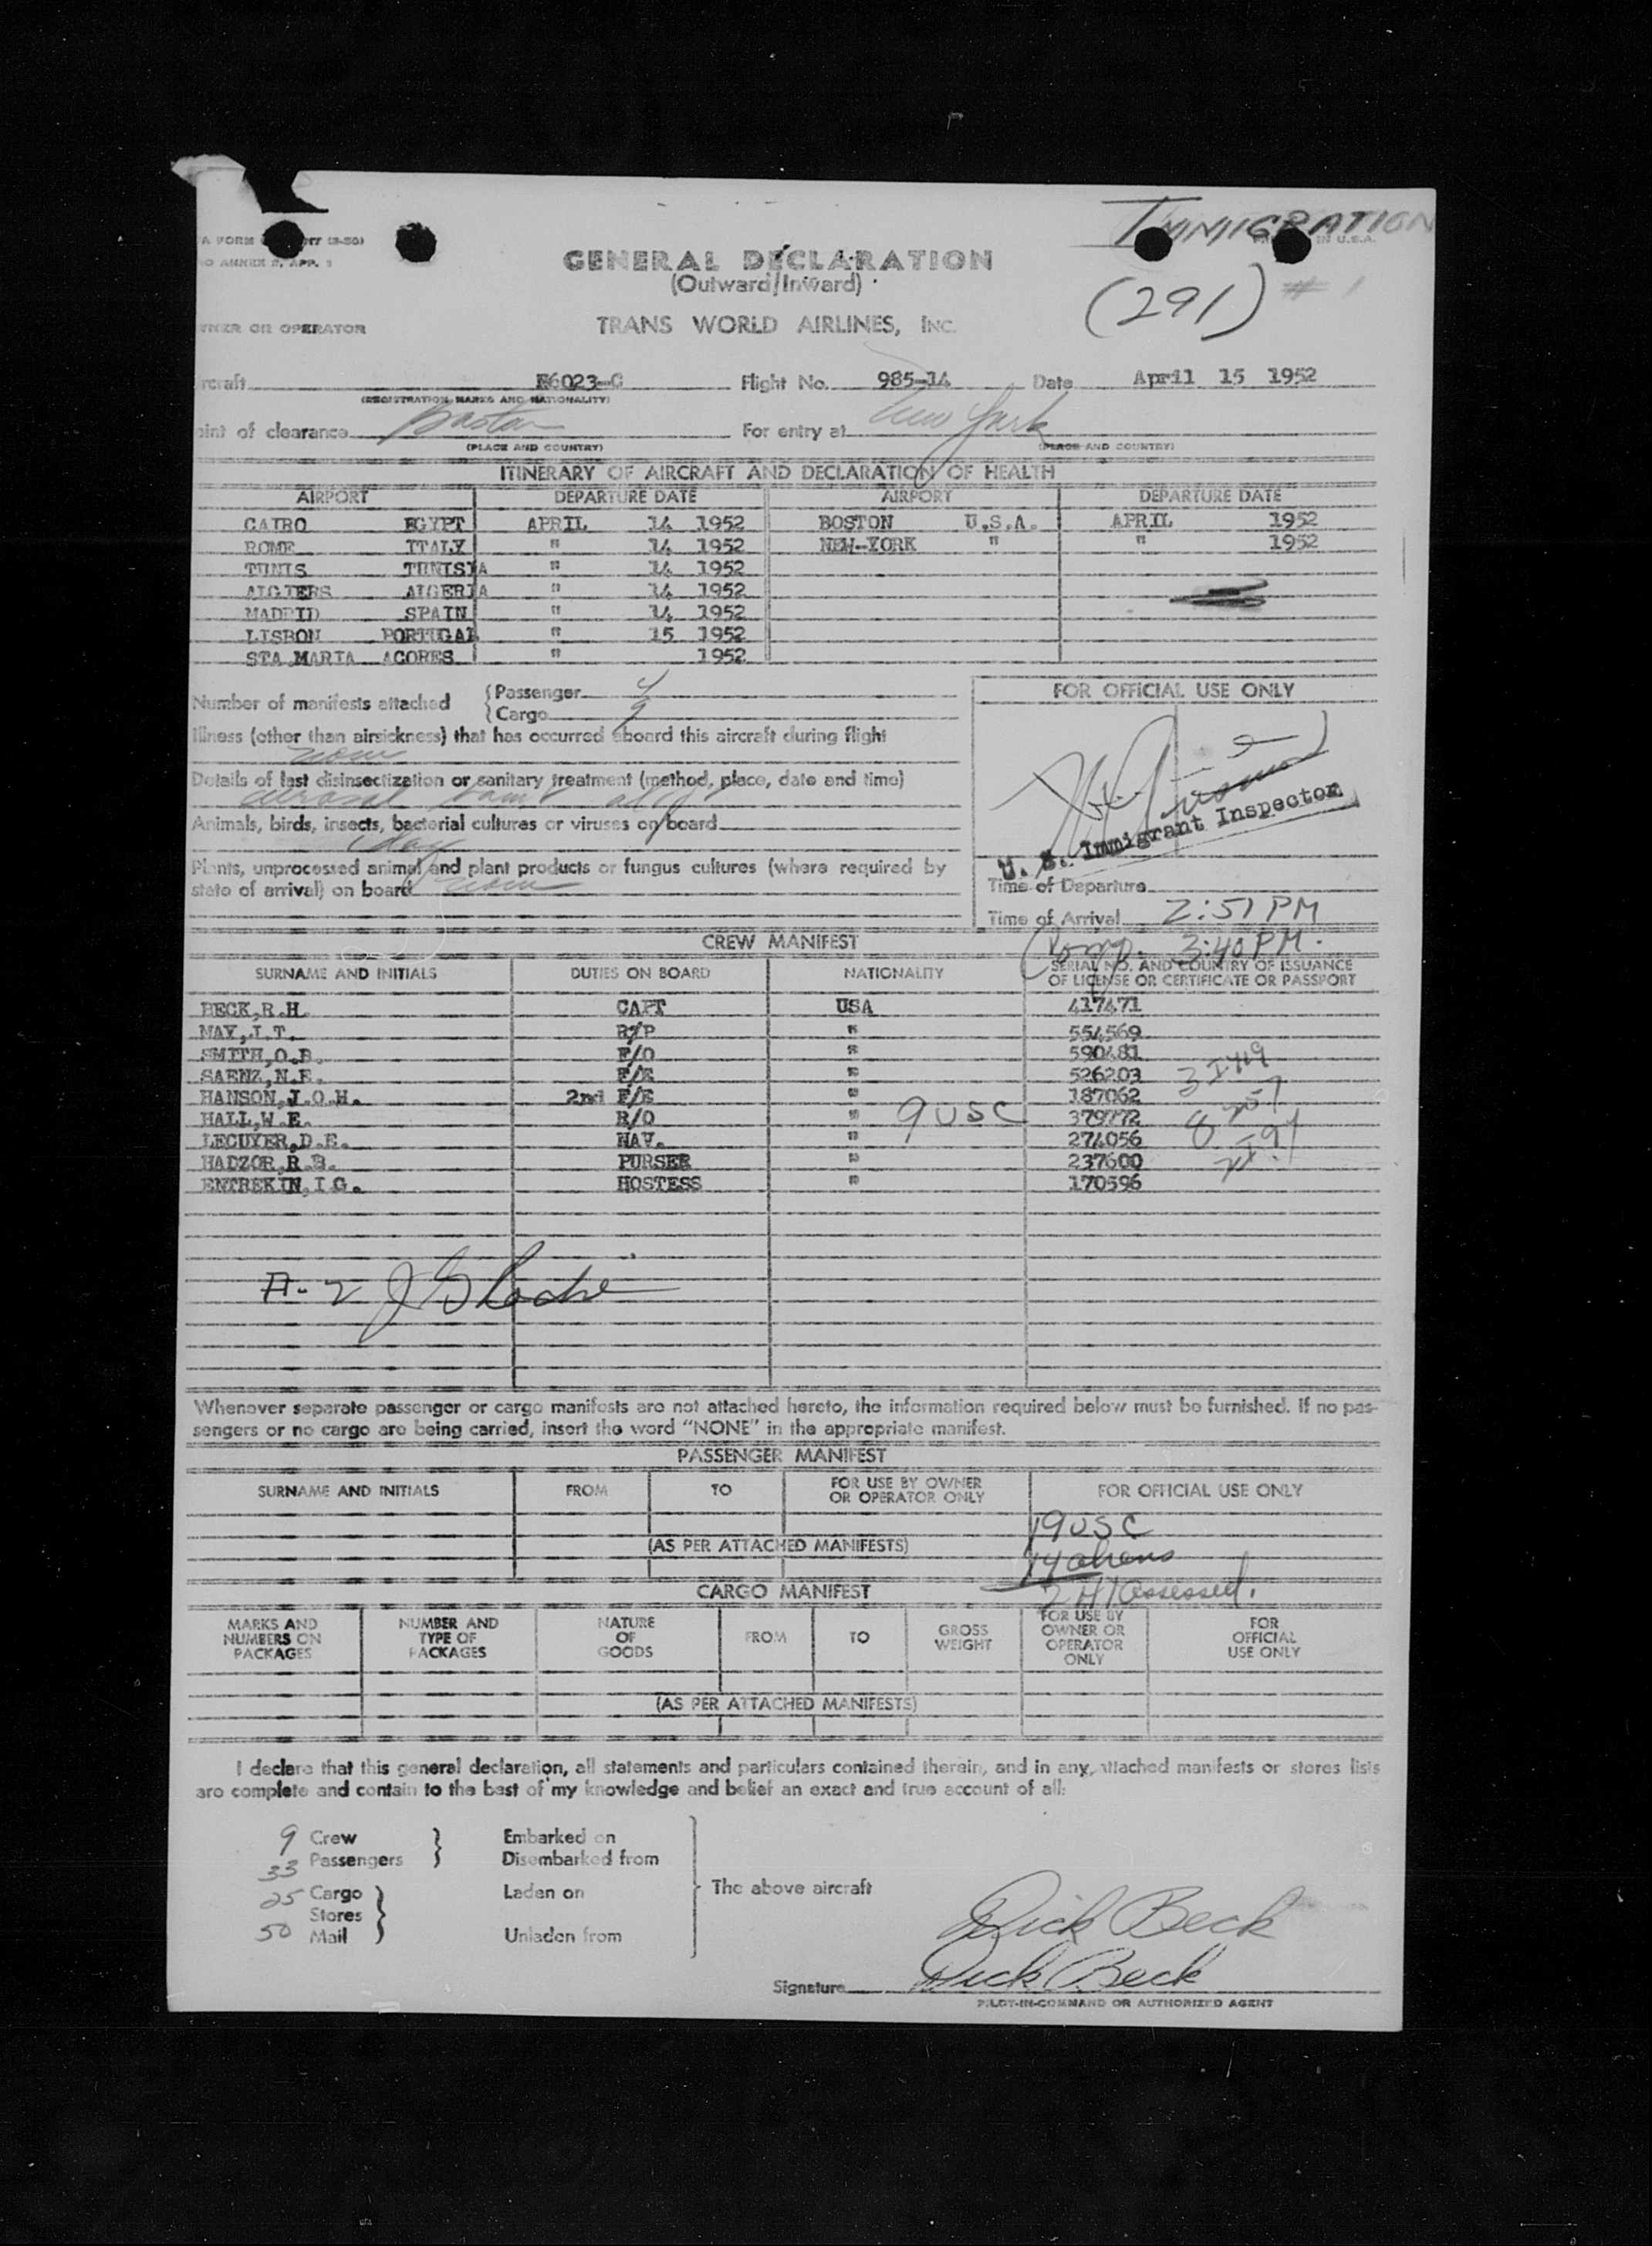 IMMIGRATION
IN U.S.A.
GENERAL DECLARATION
(Outward/Inward)
(291) # 1
OR OPERATOR
TRANS WORLD AIRLINES, INC.
6023-C Flight No. 985-14 Date April 15 1952
(REGISTRATION, MARKS AND NATIONALITY)
of clearance Boston For entry at New York
(PLACE AND COUNTRY) (PLACE AND COUNTRY)
ITINERARY OF AIRCRAFT AND DECLARATION OF HEALTH
AIRPORT DEPARTURE DATE AIRPORT DEPARTURE DATE
CAIRO EGYPT APRIL 14 1952 BOSTON U.S.A. APRIL 1952
ROME ITALY " 14 1952 NEW-YORK " " 1952
TUNIS TUNISIA " 14 1952
ALGIERS ALGERIA " 14 1952
MADRID SPAIN " 14 1952
LISBON PORTUGAL " 15 1952
STA MARIA ACORES " 1952
Number of manifests attached { Passenger 4
{ Cargo 9
FOR OFFICIAL USE ONLY
Illness (other than airsickness) that has occurred aboard this aircraft during flight
none
Details of last disinsectization or sanitary treatment (method, place, date and time)
aerosol
Animals, birds, insects, bacterial cultures or viruses on board
Plants, unprocessed animal and plant products or fungus cultures (where required by
state of arrival) on board none
U. S. Immigrant Inspector
Time of Departure
Time of Arrival 2:51 PM
Comp. 3:40 PM.
CREW MANIFEST
SURNAME AND INITIALS DUTIES ON BOARD NATIONALITY SERIAL NO. AND COUNTRY OF ISSUANCE
OF LICENSE OR CERTIFICATE OR PASSPORT
BECK,R.H. CAPT USA 417471
MAY,J.T. R/P " 554569
SMITH,O.B. F/O " 590481
SAENZ,N.E. F/E " 526203
HANSON,J.O.H. 2nd F/E " 187062
HALL,W.E. R/O " 9 USC 379772
LECUYER,D.E. NAV. " 274056
HADZOR,R.B. PURSER " 237600
ENTREKIN,I G. HOSTESS " 170596
Whenever separate passenger or cargo manifests are not attached hereto, the information required below must be furnished. If no pas-
sengers or no cargo are being carried, insert the word "NONE" in the appropriate manifest.
PASSENGER MANIFEST
SURNAME AND INITIALS FROM TO FOR USE BY OWNER
OR OPERATOR ONLY FOR OFFICIAL USE ONLY
19 USC
(AS PER ATTACHED MANIFESTS) 14 aliens
CARGO MANIFEST 2 HT assessed.
MARKS AND
NUMBERS ON
PACKAGES NUMBER AND
TYPE OF
PACKAGES NATURE
OF
GOODS FROM TO GROSS
WEIGHT FOR USE BY
OWNER OR
OPERATOR
ONLY FOR
OFFICIAL
USE ONLY
(AS PER ATTACHED MANIFESTS)
I declare that this general declaration, all statements and particulars contained therein, and in any attached manifests or stores lists
are complete and contain to the best of my knowledge and belief an exact and true account of all:
9 Crew } Embarked on
33 Passengers } Disembarked from
25 Cargo } Laden on The above aircraft
Stores }
50 Mail } Unladen from
Dick Beck
Signature Dick Beck
PILOT-IN-COMMAND OR AUTHORIZED AGENT